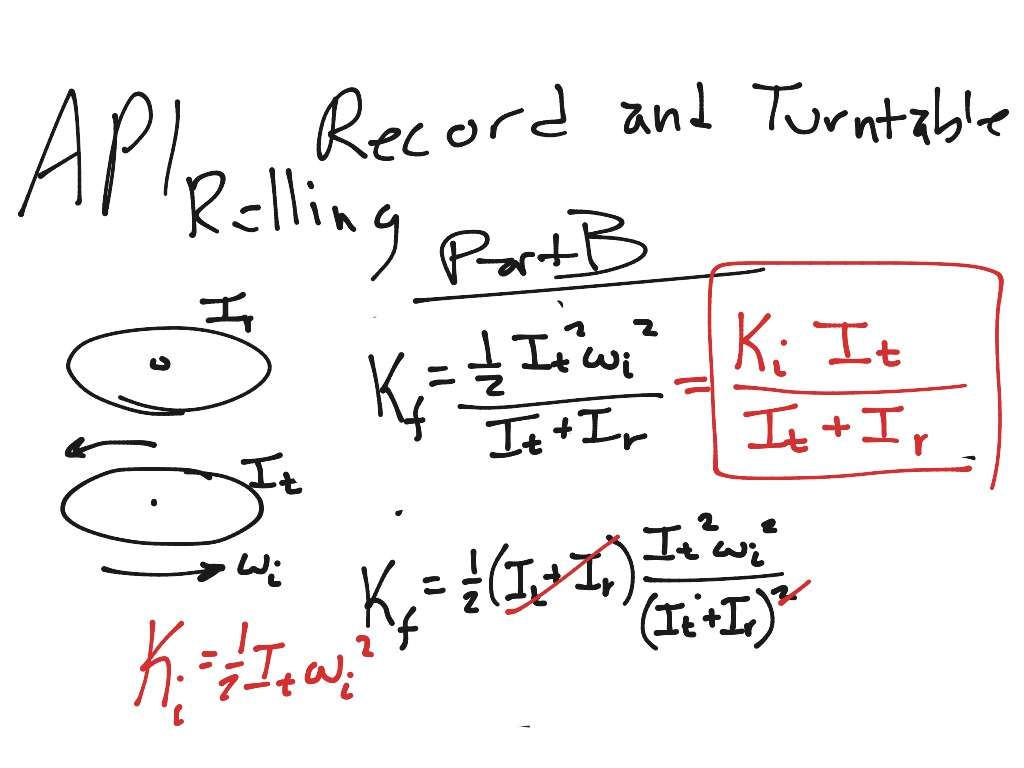 AP1 Record and Turntable
Rolling
Part B
I_r
K_f = (1/2 I_t^2 ω_i^2) / (I_t + I_r) = (K_i I_t) / (I_t + I_r)
I_t
ω_i
K_f = 1/2 (I_t + I_r) (I_t^2 ω_i^2) / (I_t + I_r)^2
K_i = 1/2 I_t ω_i^2